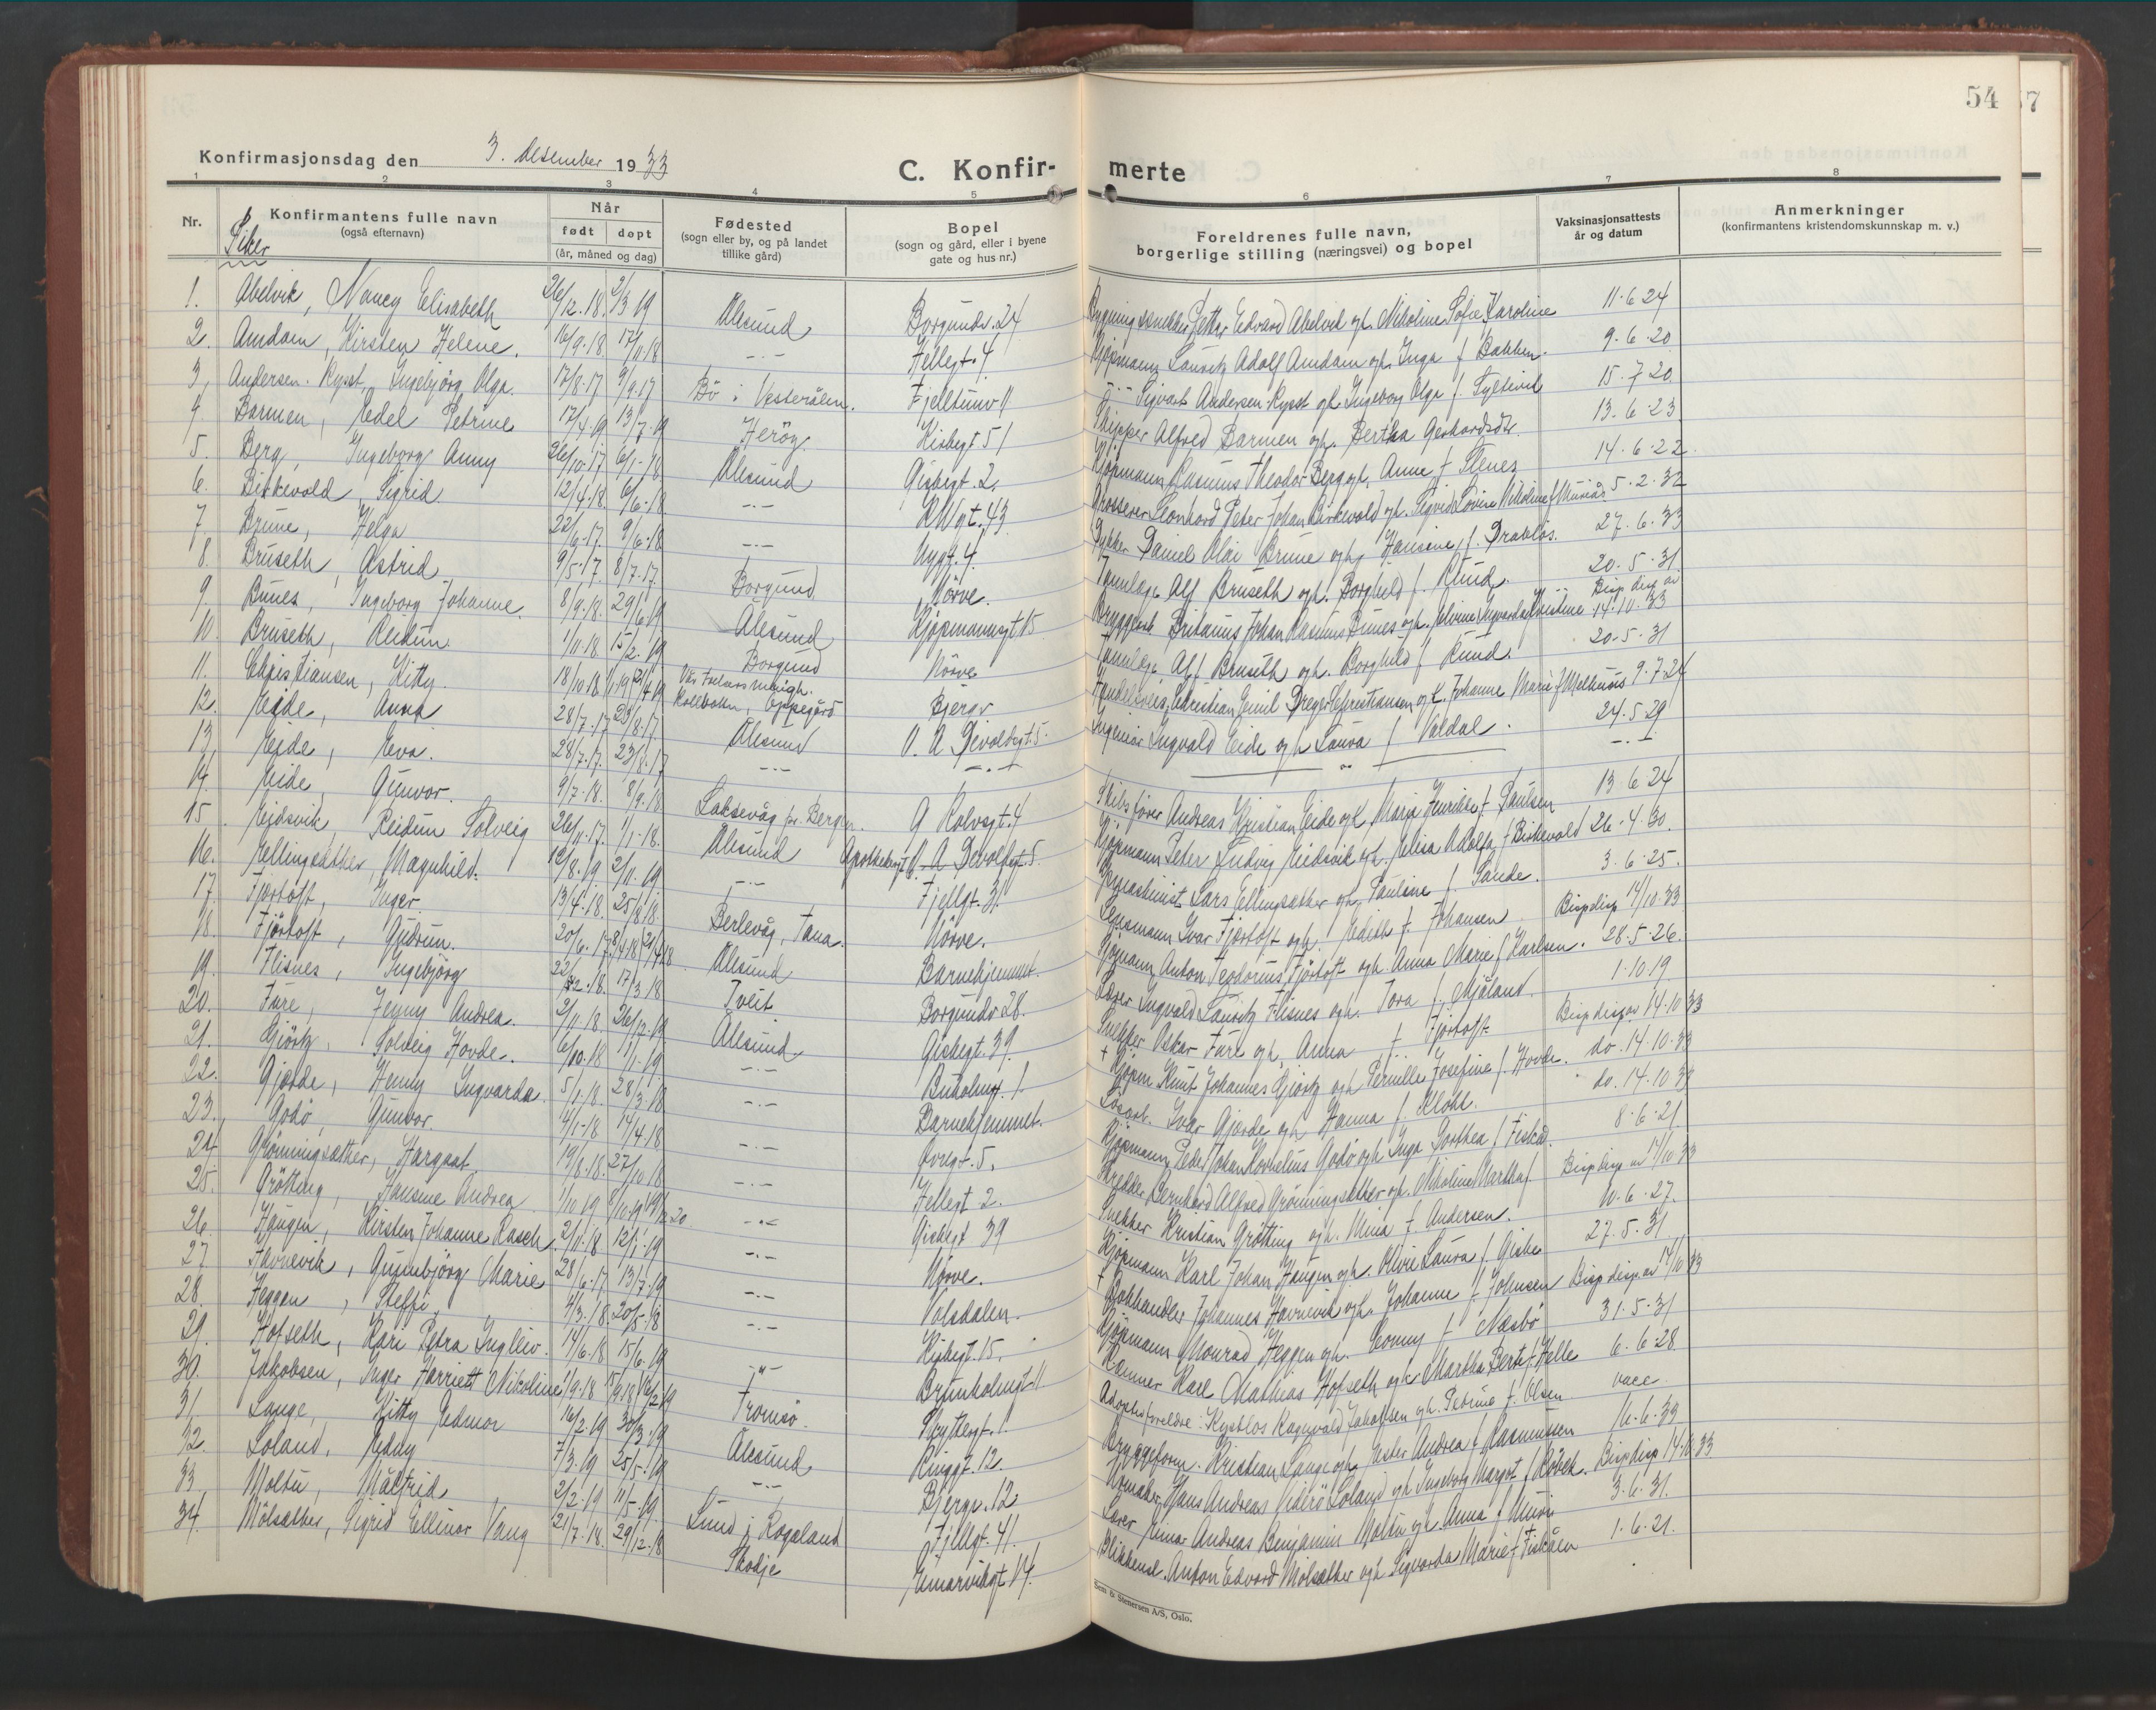 54
Konfirmasjonsdag den 3. desember 1933
C. Konfirmerte
1 2 3 4 5 6 7 8
Nr.
Konfirmantens fulle navn
(også efternavn)
Piker
Når
født døpt
(år, måned og dag)
Fødested
(sogn eller by, og på landet
tillike gård)
Bopel
(sogn og gård, eller i byene
gate og hus nr.)
Foreldrenes fulle navn,
borgerlige stilling (næringsvei) og bopel
Vaksinasjonsattests
år og datum
Anmerkninger
(konfirmantens kristendomskunnskap m. v.)
1. Abelvik, Nancy Elisabeth 26/12.18. 2/3 19 Ålesund Borgundv. 24 Petter Edvard Abelvik og h. Nikoline Sofie Karoline 11.6 24
2. Amdam, Kirsten Helene. 16/9.18. 17/11.18 -.- Hellegt. 4 Kjøpmann Lauritz Adolf Amdam og h. Inga f Bakken. 9.6.20
3, Andersen Rysst, Ingebjörg Olga. 17/8.17 9/9.17 Bö i Vesterålen. -.- Sigvart Andersen Rysst og h. Ingeborg Olga f. 15.7 20.
4 Barmen, Edel Petrine 17/4.19 13/7.19 Heröy. Kirkegt 51 Skipper Alfred Barmen og h. Bertha Gerhardsdtr. 13.6.23
5. Berg, Ingeborg Anny 26/10.17 6/1.18. Ålesund Giskegt. 2. Kjøpmann Rasmus Theodor Berg og h. Anne f Stenes 14.6.22.
6. Birkevold, Sigrid 12/4.18. 6/6.18 -.- 5.2.32
7 Brune, Helga 22/6.17. 9/6.18 -.- Nygt. 4. Daniel Olai Brune og h. Hansine f. Drabløs. 27.6.33
8. Bruseth, Astrid 9/5.17. 8/7.17. Borgund Nörve. Tannlæge Alf Bruseth og h. Borghild f. Rund. 20.5.31.
9. Bunes, Ingeborg Johanne. 8/9.18. 29/6.19 Ålesund Kjøpmannsgt 15 Bisp. disp av 14.10.33
10. Bruseth, Reidun. 1/11.18. 15/2.19 Borgund Nörve Tannlæge Alf Bruseth og h. Borghild f Rund. 20.5.31
11. Christiansen, Kitty. 18/10 18 Vår Frelsers menigh. Bjergv 9.7.24
12. Eide, Anna 28/7.17 23/8.17. Kolbotn, Oppegård Ålesund O. A Devoldsgt. 5. Ingeniør Ingvald Eide og h Laura f Valdal. 24.5.29
13, Eide, Eva. 28/7.17. 23/8.17 -.- -.- -.-
14. Eide, Gunvor. 9/7.18. 8/9.18 Laksevåg pr. Bergen. Skibsfører Andreas Kristian Eide og h. Marja Henrikke f. Paulsen 13.6 24
15 Eidsvik, Reidun Solveig 26/11.17. 1/1.18. Ålesund O. A Devoldsgt. 5. Kjøpmann Peter Ludvig Eidsvik og h. Elisa Adolfa f Birkevold 26.4.30.
16. Ellingsæther, Magnhild. 12/8.19 2/11.19. -.- Fjellgt. 31. Lars Ellingsæther og h. Pauline f. Sande. 3.6.25.
17. Fjørtoft, Inger. 13/4.18. 25/8.18. Berlevåg, Tana. Nörve. Ivar Fjørtoft og h. Edith f. Johansen Bisp disp 14/10.33
18. Fjørtoft, Gudrun. 20/6.17. Ålesund Barnehjemmet. Kjøpmann Anton Teodorius Fjørtoft og h. Anna Marie f Karlsen. 28.5.26.
19. Flisnes, Ingebjörg 17/3 18 Tveit Borgundv 28. Lærer Ingvald Lauritz Flisnes og h. Tora f. Mjåland. 1.10.19
20. Fure, Jenny Andrea. 2/11.18. Ålesund Giskegt. 39. Snekker Oskar Fure og h. Anna f Fjørtoft Bisp disp av 14.10 33
21. Giörtz, Solveig Hovde. 6/10.18 1/1.19 -.- Buholmgt. 1. † Kjøpm Knut Johannes Giörtz og h Pernille Josefine f. Hovde. do. 14.10.33
22. Gjærde, Henny Ingvarda 5/1.18. 28/3.18 -.- Barnehjemmet. Ivar Gjærde og h Hanna f. Klokk. do. 14.10 33
23. Godö, Gunvor. 4/1-18 14/4.18 -.- Øvregt. 5. Kjøpmann Peder Johan Kornelius Godö og h Inga Dorthea f Fiskå. 8.6.21
24 Grønningsæther, Margaat. 19/8.18. 27/10.18 -.- Hellegt 2. Skredder Bernhard Alfred Grønningsæther og h. Nikoline Martha f Bisp disp av 14/10 33
25. Grötting, Hansine Andrea 1/10 19 -.- Giskegt 39 Snekker Kristian Grötting og h. Mina f. Andersen. 10.6.27.
26. Haugen, Kirsten Johanne Rasch. 2/11.18 12/1.19 -.- Nörve. Kjøpmann Karl Johan Haugen og h. Olive Laura f. Giske 27.5.31
27 Havnevik, Gunnbjörg Marie 28/6.17. 13/7.19 -.- Volsdalen. † Bokhandler Johannes Havnevik og h. Johanne f. Johnsen Bisp disp. av 14/10 33
28. Heggen, Steffi 4/3.18. 20/5.18 -.- Kirkegt. 15. Kjøpmann Monrad Heggen og h. Conny f. Næsbö 31.5.31
29. Hofseth, Kari Petra Ingleiv. 14/6.18 15/6.19 -"- Brunholmgt 11 Karl Mathias Hofseth og h Martha Berte f Helle 6.6.28.
30. Jakobsen, Inger Harriett Nikoline 1/9.18 Tromsö. Skyttergt. 1. Adoptivforeldre: Ragnvald Jakobsen og h. Petrine f. Olsen. vacc.
31 Lange, Kitty Edmor 16/2.19 30/3.19 Ålesund Ringgt. 12. Bryggeform. Kristian Lange og h. Ester Andrea f Rasmussen 16.6.33
32. Loland, Edny 7/3.19 25/5.19 -.- Bjergv. 12 Urmaker Hans Andreas Loland og h Ingeborg Margot f. Röbek. Bisp disp 14.10.33
33 Moltu, Målfrid 2/2.19 11/5.19. Lund i Rogaland Fjellgt. 41. Lærer Einar Andreas Benjamin Moltu og h. Anna f. 3.6.31.
34. Mölsæther, Sigrid Ellinor Vang 21/7.18. 29/12.18 Skodje Blikkensl. Anton Edvard Mölsæther og h Sigvarda Marie f Fiskåen 1.6.21.
Sem & Stenersen A/S, Oslo.